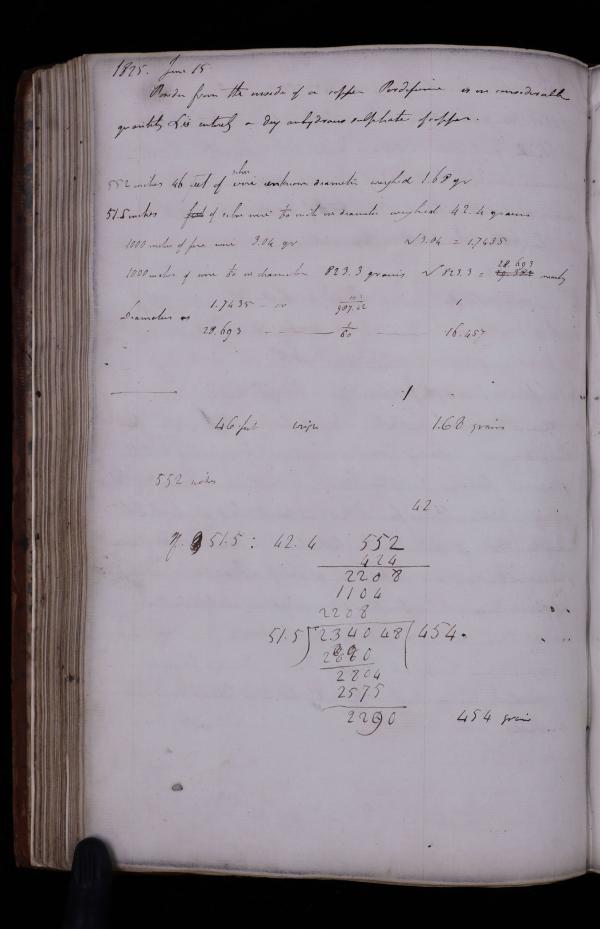 1825. June 15
Powder from the inside of a copper is in considerable
quantity & is entirely a dry anhydrous sulphate of copper.
552 inches 46 feet of silver wire unknown diameter weighed 1.68 gr
51.5 inches feet of silver wire 1/60 inch in diameter weighed 42.4 grains
1000 inches of fine wire 3.04 gr √3.04 = 1.7435
1000 inches of wire 1/60 in diameter 823.3 grains √823.3 = 28.693 nearly
Diameters as
1.7435 - or 1/987.42 1
28.693 1/60 16.457
46 feet weigh 1.68 grains
552 inches
42
If 51.5 : 42.4 552
424
2208
1104
2208
51.5 ) 23404 8 ( 454.
2060
2804
2575
2290 454 grains